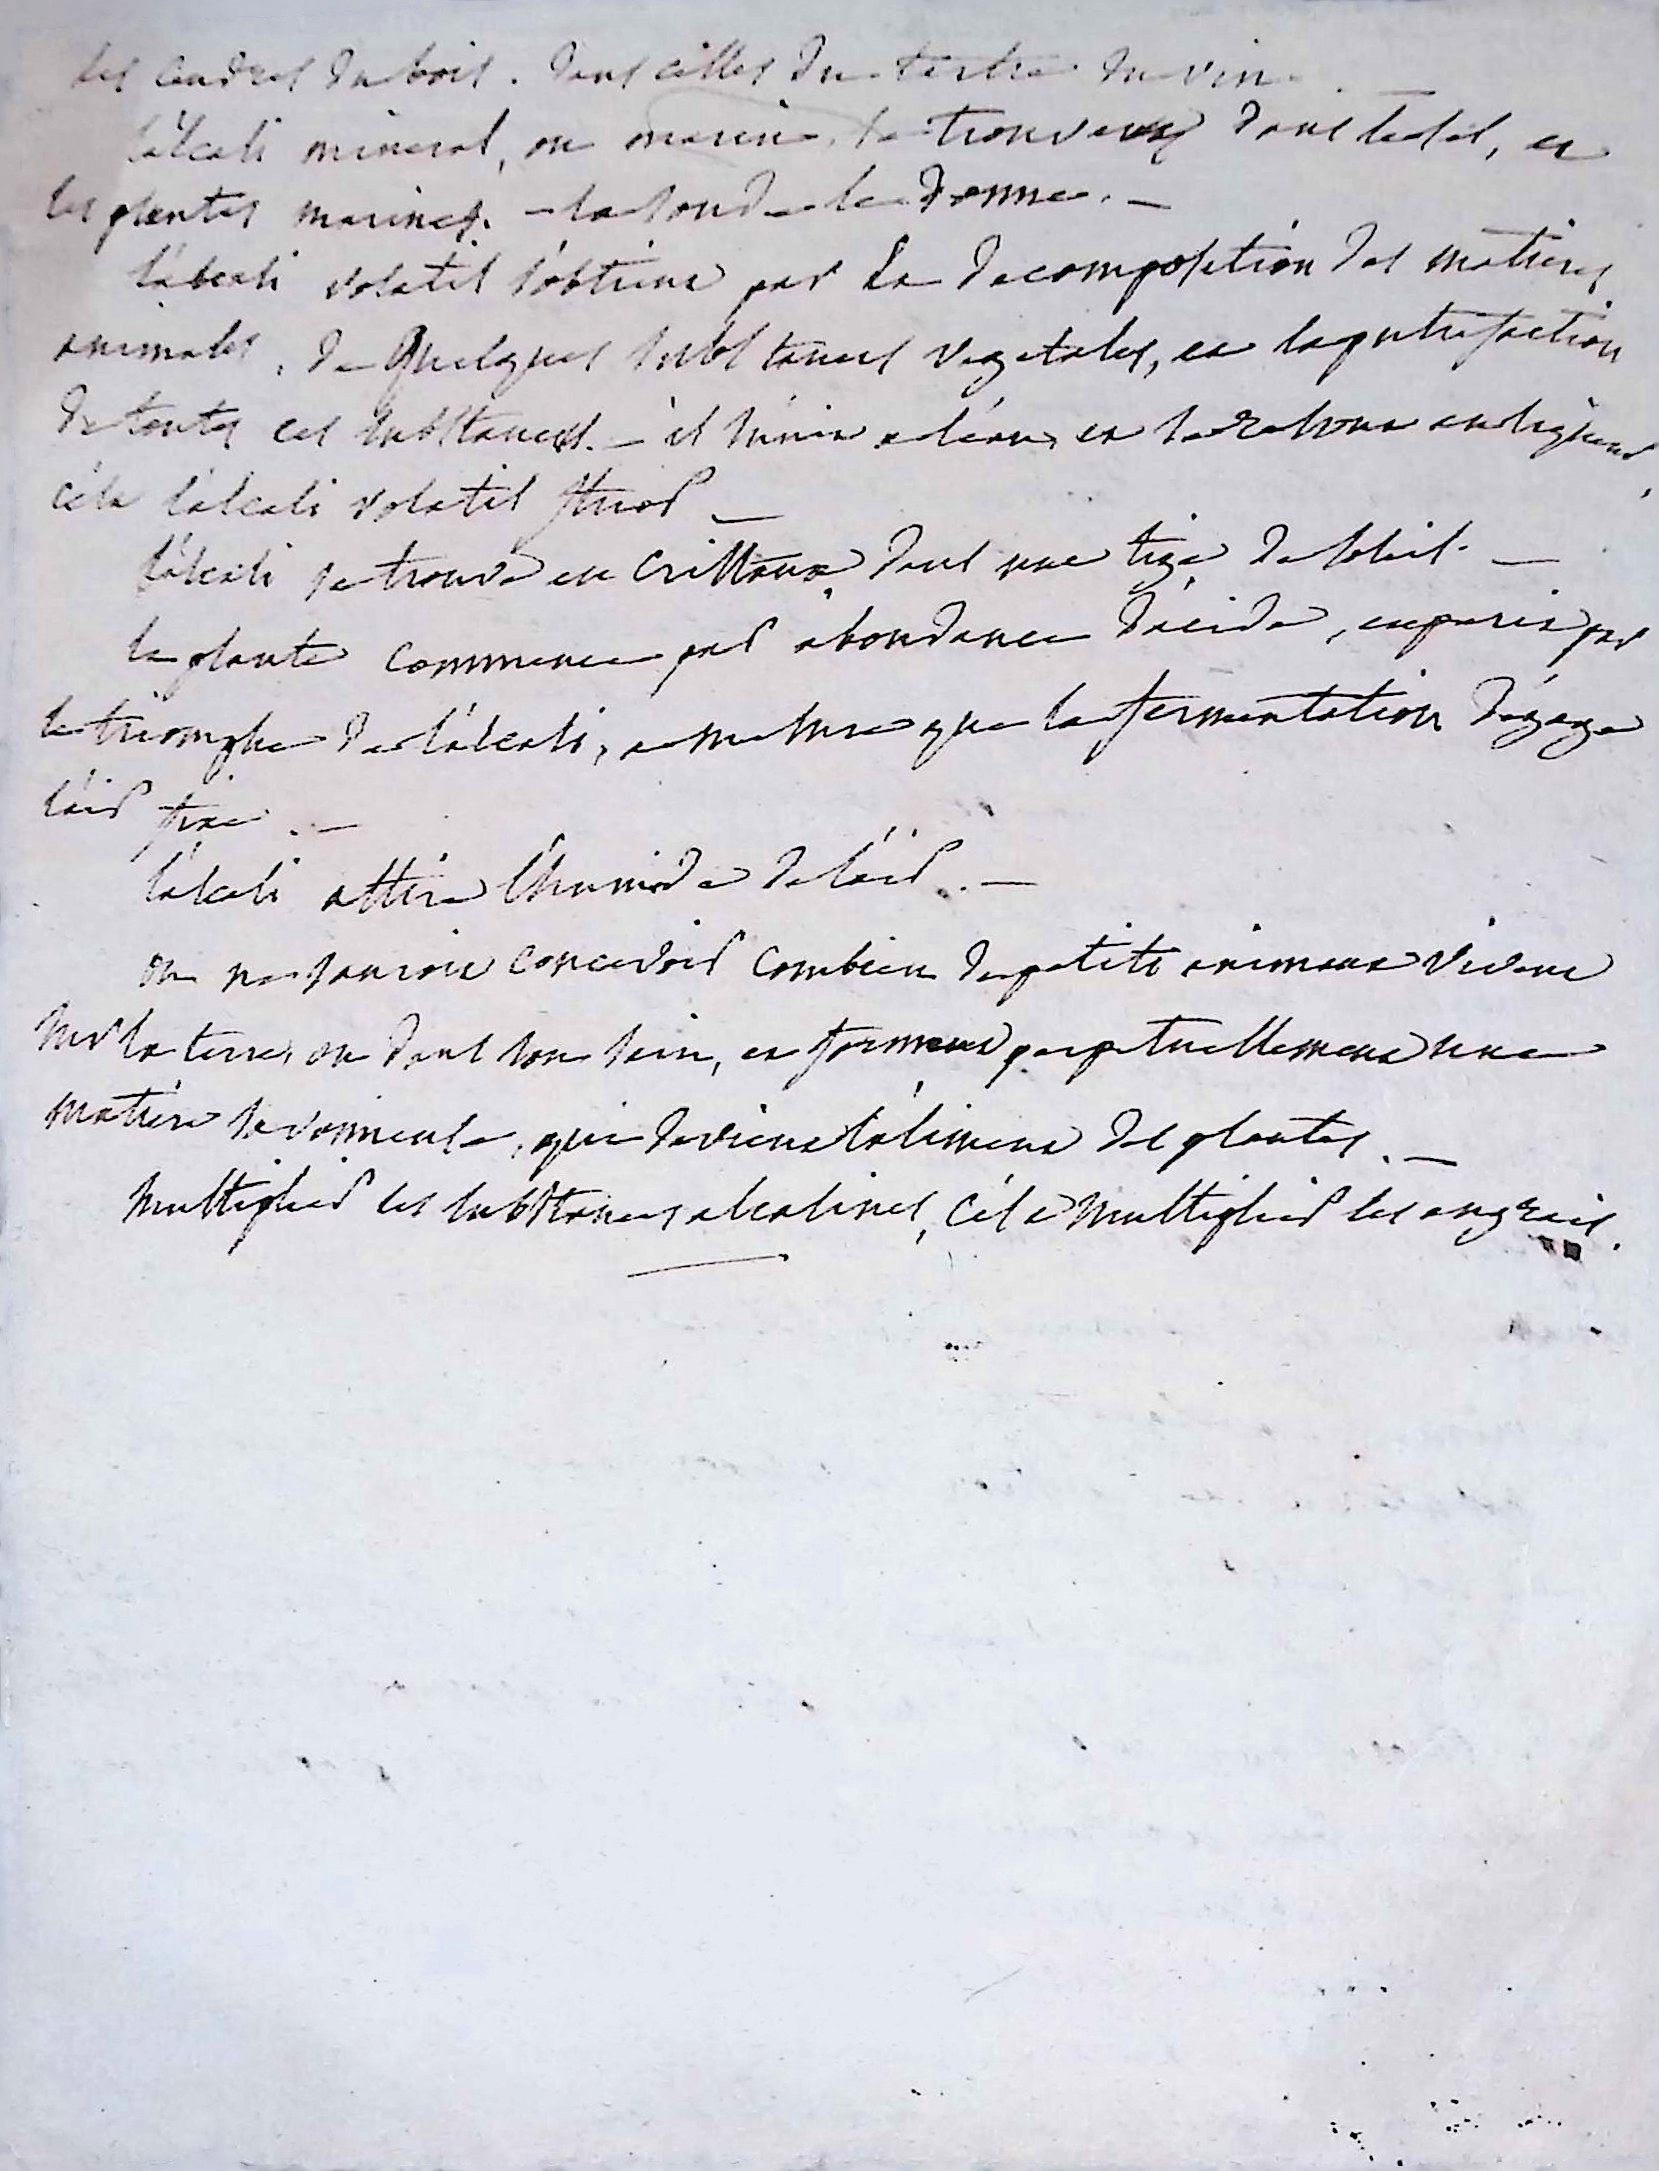 les cendres du bois. dans celles du tartre du vin.
l'alcali mineral, ou marin, se trouve dans le sel, et
les plantes marines. - la soude le donne. -
l'alcali volatil s'obtient par la decomposition des matieres
animales, de quelques substances vegetales, et la putrefaction
de toutes ces substances. - il s'unit a l'eau, et se resout en liqueur,
c'est l'alcali volatil fluor -
l'alcali se trouve en cristaux dans une tige de soleil. -
la plante commence par abondance d'acide, et perit par
le triomphe de l'alcali, a mesure que la fermentation dégage
l'air fixe. -
l'alcali attire l'humide de l'air. -
on ne sauroit concevoir combien de petits animaux vivent
sur la terre, ou dans son sein, et forment perpetuellement une
matiere savonneuse, qui devient l'aliment des plantes. -
multiplier les substances alcalines, c'est multiplier les engrais.